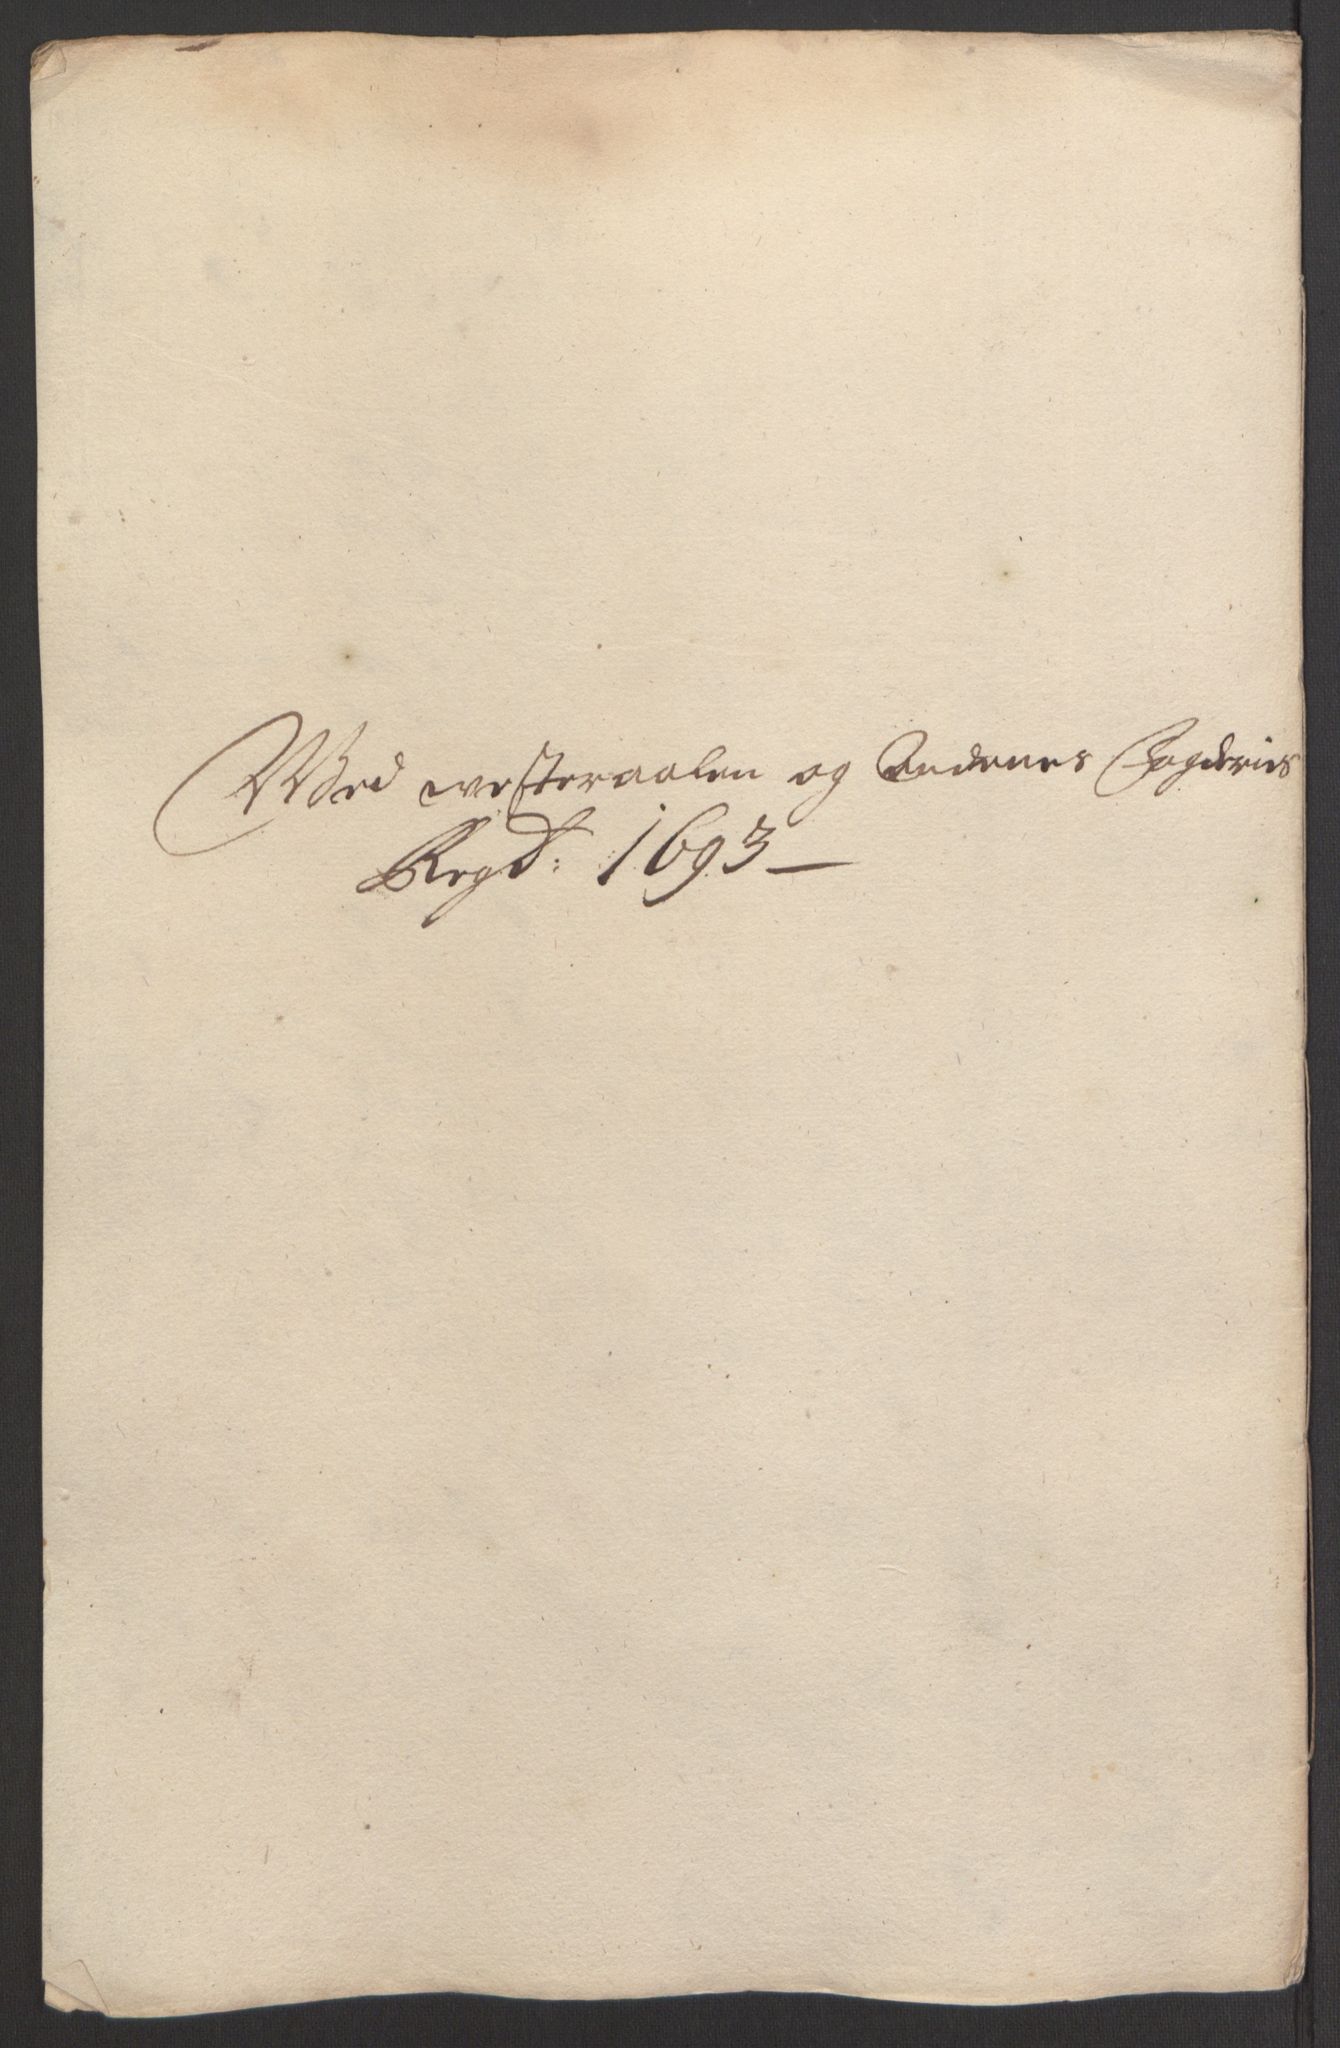 Wed westeraalen og Andenes Fogderies
Regd: 1693